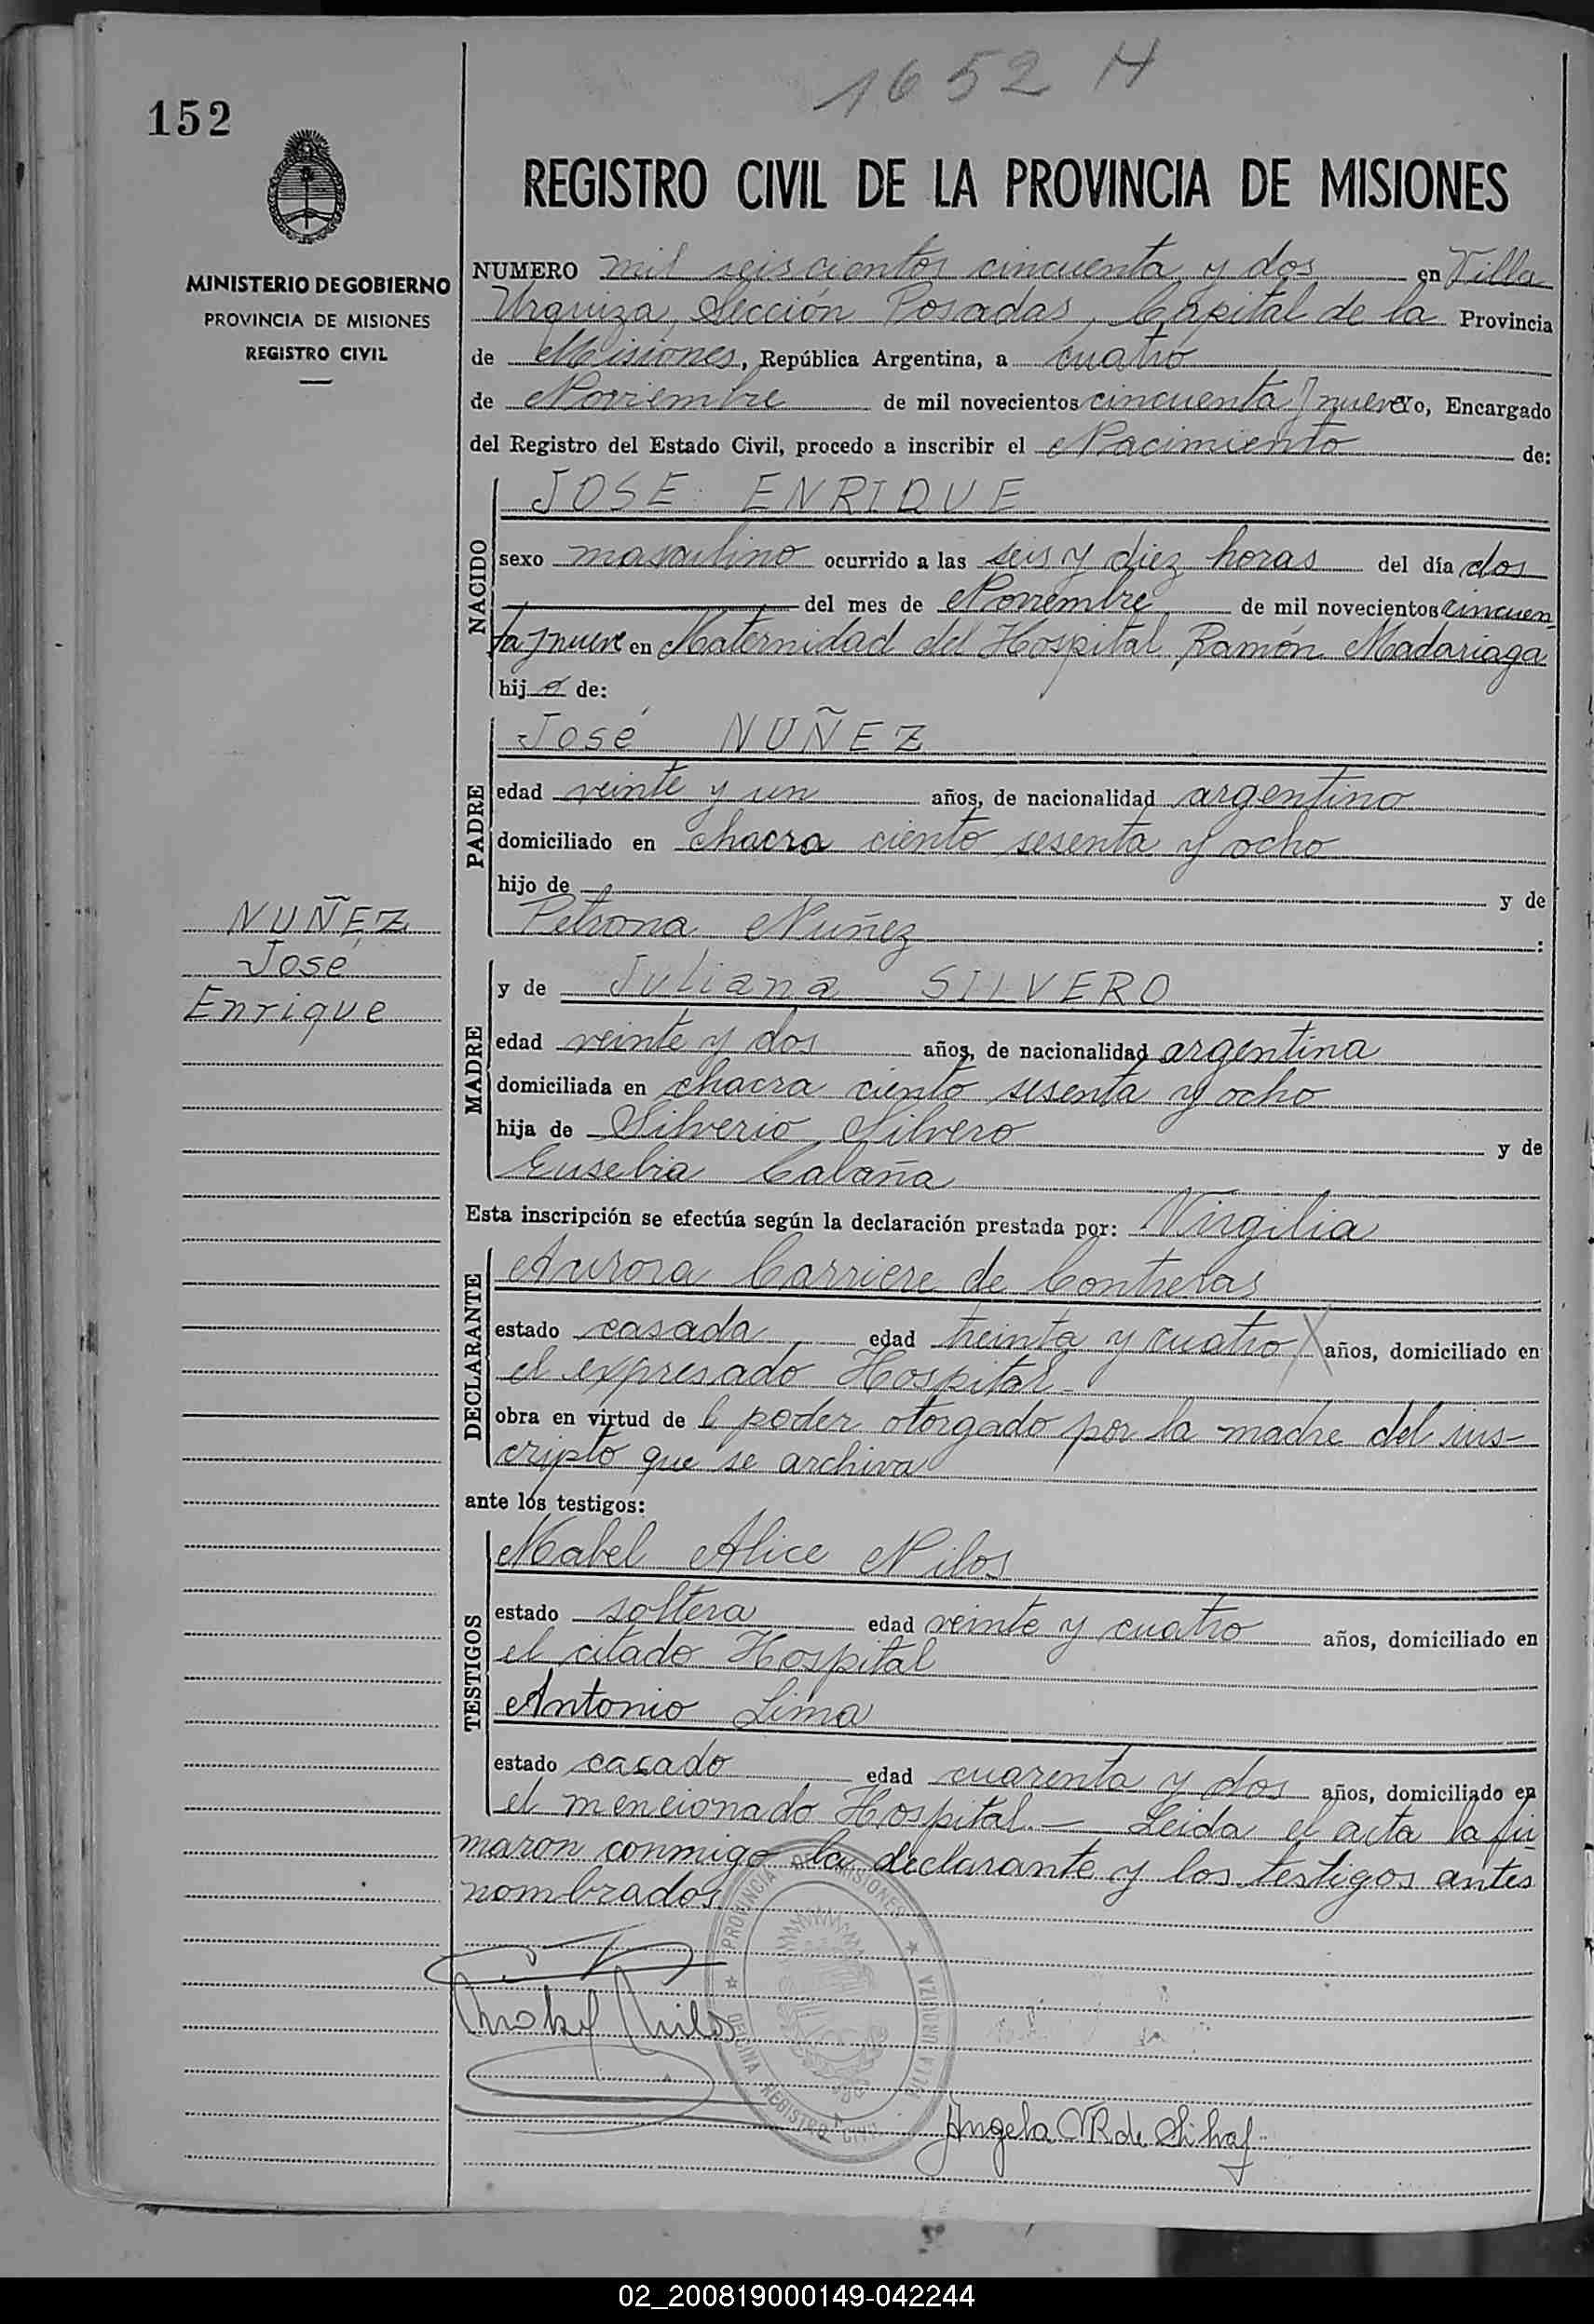 1652 H
152
REGISTRO CIVIL DE LA PROVINCIA DE MISIONES
MINISTERIO DE GOBIERNO
PROVINCIA DE MISIONES
REGISTRO CIVIL
NUMERO mil seiscientos cincuenta y dos en Villa
Urquiza, Sección Posadas, Capital de la Provincia
de Misiones, República Argentina, a cuatro
de Noviembre de mil novecientos cincuenta y nueve yo, Encargado
del Registro del Estado Civil, procedo a inscribir el Nacimiento de:
NACIDO
JOSE ENRIQUE
sexo masculino ocurrido a las seis y diez horas del día dos
del mes de Noviembre de mil novecientos cincuen
ta y nueve en Maternidad del Hospital Ramón Madariaga
hijo de:
PADRE
José NUÑEZ
edad veinte y un años, de nacionalidad argentino
domiciliado en chacra ciento sesenta y ocho
hijo de y de
Petrona Nuñez :
NUÑEZ
José
Enrique
MADRE
y de Juliana SILVERO
edad veinte y dos años, de nacionalidad argentina
domiciliada en chacra ciento sesenta y ocho
hija de Silverio Silvero y de
Eusebia Cabaña
Esta inscripción se efectúa según la declaración prestada por: Virgilia
DECLARANTE
Aurora Carriere de Contreras
estado casada edad treinta y cuatro años, domiciliado en
el expresado Hospital.
obra en virtud de poder otorgado por la madre del ins-
cripto que se archiva
ante los testigos:
TESTIGOS
Mabel Alice Nilos
estado soltera edad veinte y cuatro años, domiciliado en
el citado Hospital
Antonio Lima
estado casado edad cuarenta y dos años, domiciliado en
el mencionado Hospital.- Leida el acta la fir
maron conmigo la declarante y los testigos antes
nombrados
PROVINCIA DE MISIONES
OFICINA REGISTRO CIVIL
VILLA URQUIZA
Mabel Nilos
Angela de Silva
02_200819000149-042244